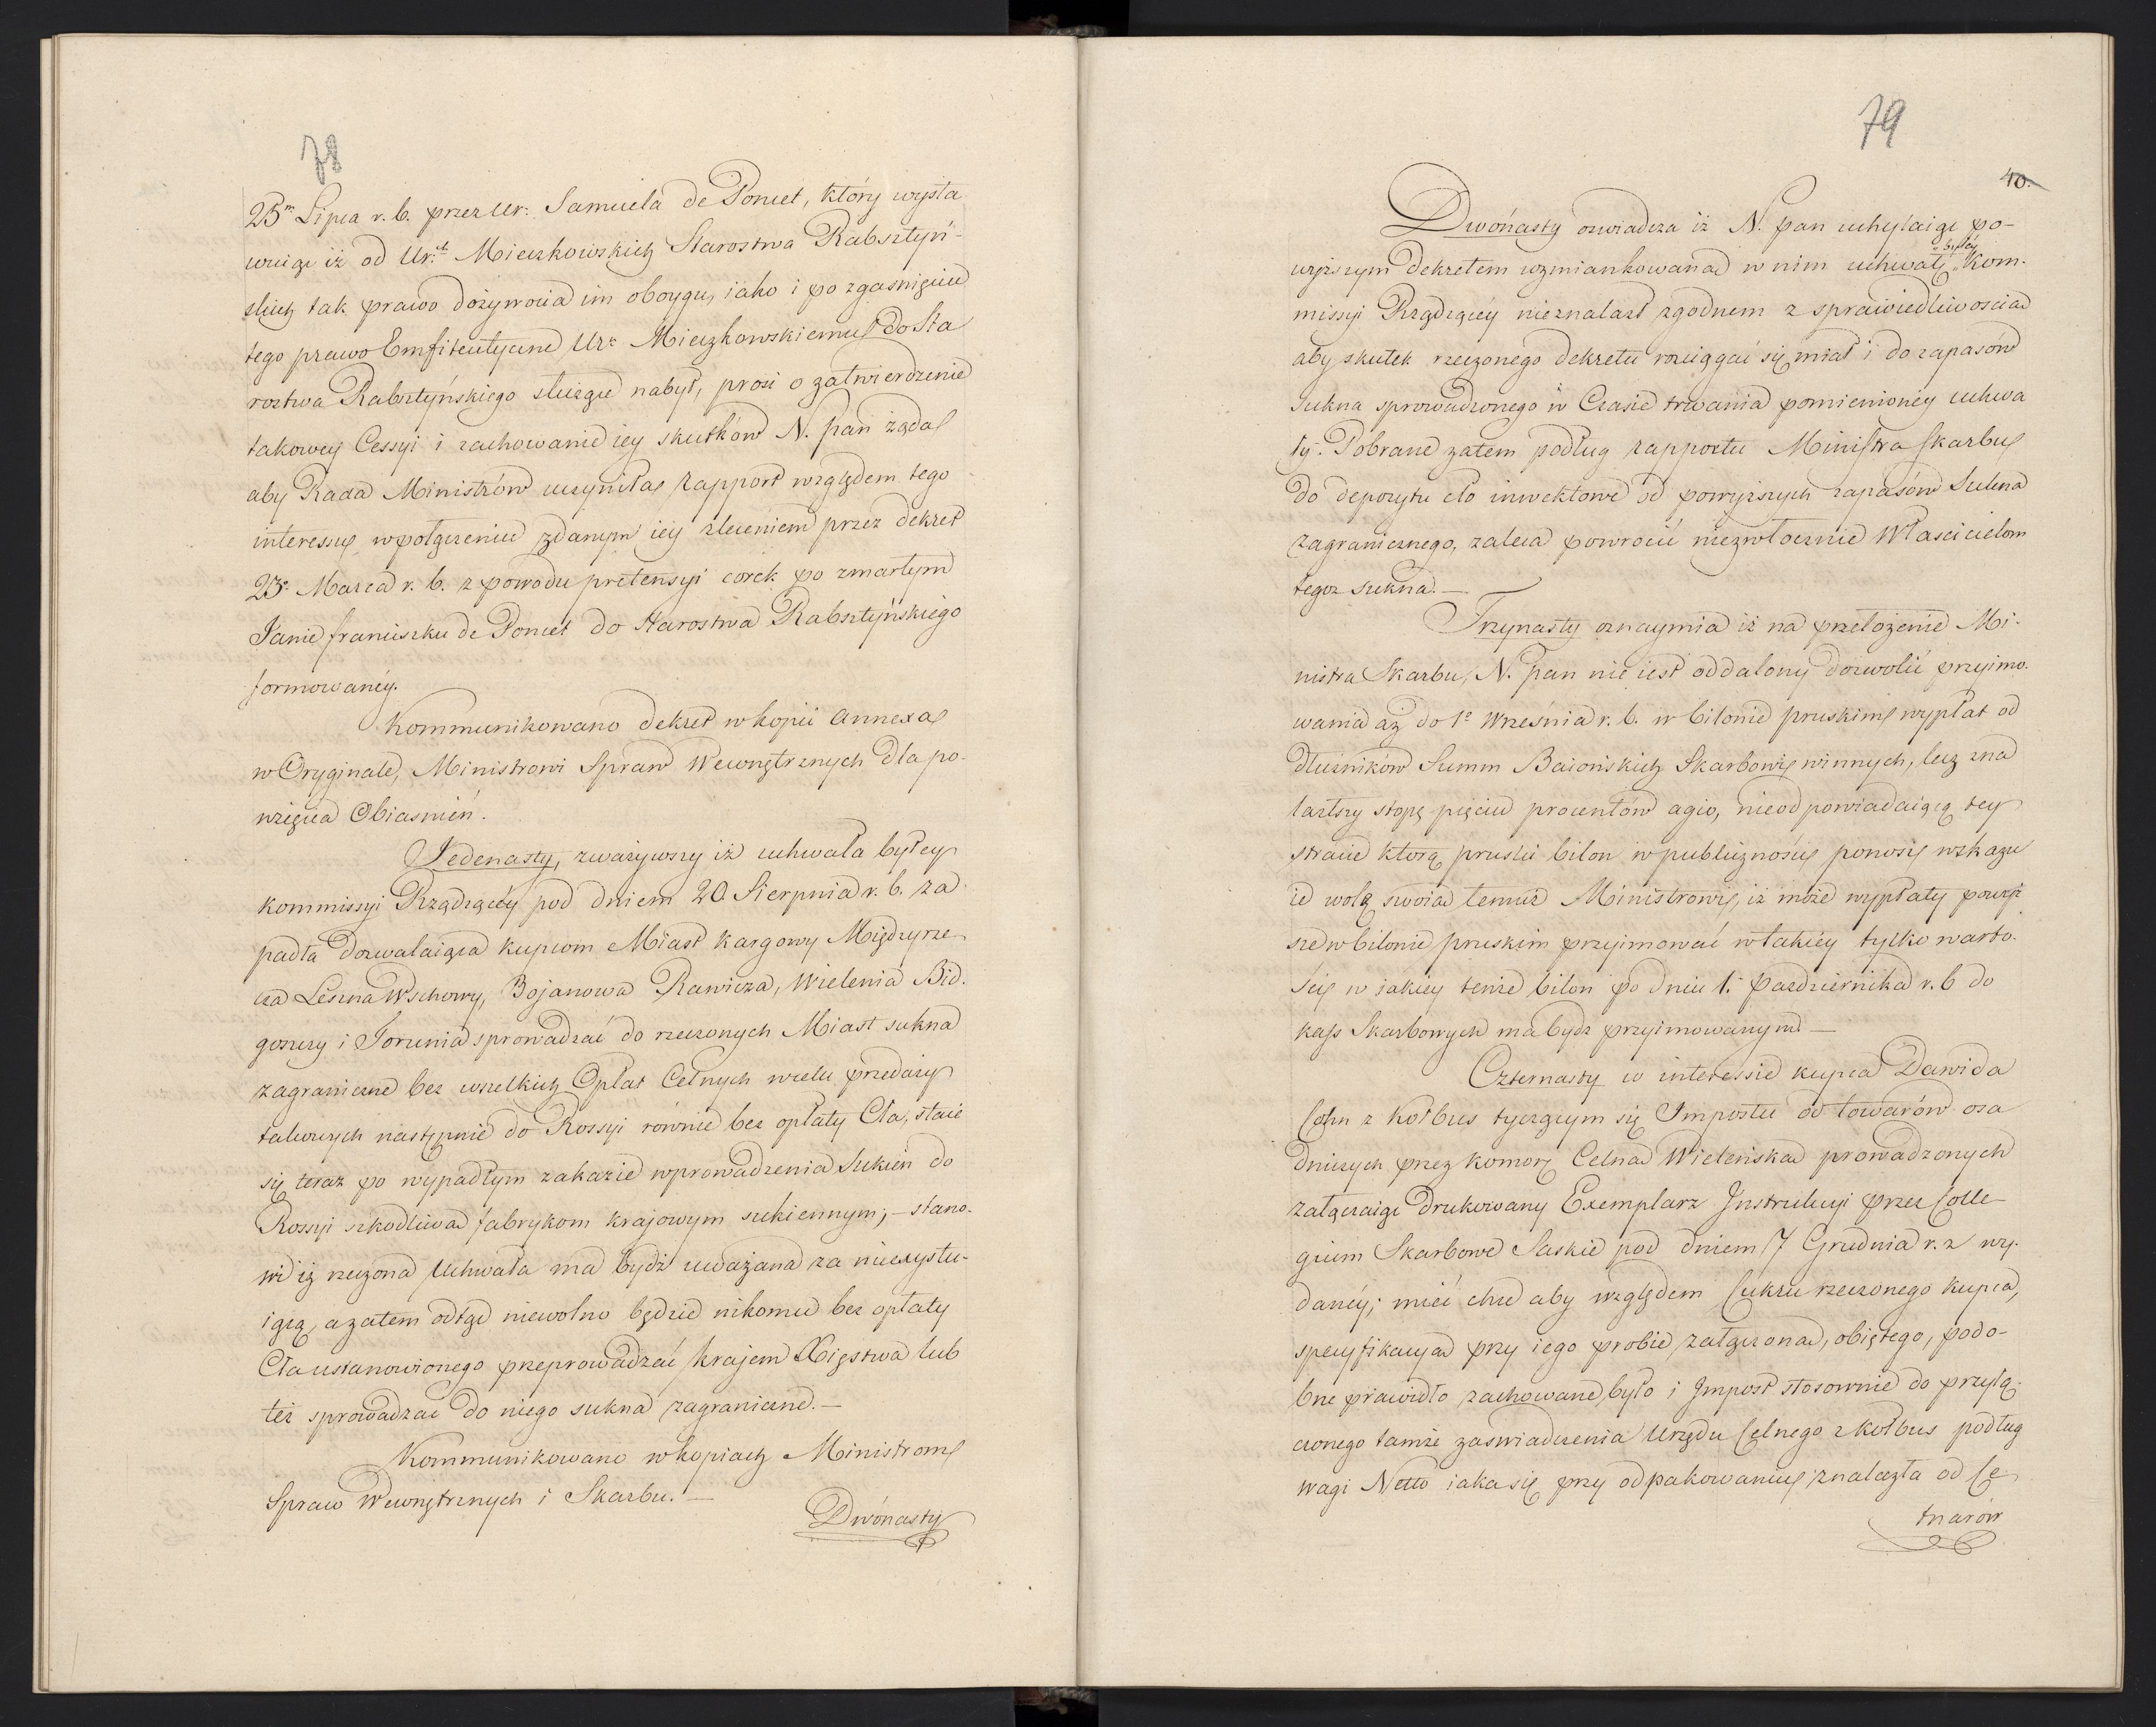 78
25.m Lipca r. b. przez Ur: Samuela de Poncet, który wysta
wuiąc iż od Ur.ch Mieczkowskich Starostwa Rabsztyń-
skich tak prawo dożywocia im oboygu, iako i po zgasnięciu
tego prawo Emfiteutyczne Ur: Mieczkowskiemu do Sta
rostwa Rabsztyńskiego służące nabył, prosi o zatwierdzenie
takowey Cessyi i zachowanie iey skutków N. Pan żąda
aby Rada Ministrów uczyniła rapport względem tego
interessu w połączeniu z danym iéy zleceniem przez dekret
23: Marca r. b. z powodu pretensyi corek po zmarłym
Janie franciszku de Poncet do Starostwa Rabsztyńskiego
formowanéy.
Kommunikowano dekret w kopii annexa
w Oryginale, Ministrowi Spraw Wewnętrznych dla po-
wzięcia Obiasnień.
Jedenasty, zważywszy iż uchwała byłey
kommissyi Rządzącéy pod dniem 20. Sierpnia r. b. za
padła dozwalaiąca kupcom Miast Kargowy Międzyrze
cza Leszna Wschowy, Bojanowa Rawicza, Wielenia Bid.
goszczy i Torunia sprowadzać do rzeczonych Miast sukna
zagraniczne bez wszelkich Opłat Celnych w celu przedaży
takowych następnie do Rossyi równie bez opłaty Cła, staie
się teraz po wypadłym zakazie wprowadzenia Sukien do
Rossyi szkodliwa fabrykom krajowym sukiennym; – stano-
wi iż rzeczona Uchwała ma bydź uważana za nieexystu-
iącą, a zatem odtąd niewolno będzie nikomu bez opłaty
Cła ustanowionego przeprowadzać krajem Xięstwa lub
też sprowadzać do niego sukna zagraniczne. –
Kommunikowano w kopiach Ministrom
Spraw Wewnętrznych i Skarbu. –
Dwónasty
79
40.
Dwónasty oswiadcza iż N. Pan uchylaiąc po-
wyższym dekretem wzmiankowana w nim uchwałę „byłéy „Kom-
missyi Rządzącéy nieznalazł zgodnem z sprawiedliwoscia
aby skutek rzeczonego dekretu rozciągać się miał i do zapasów
Sukna sprowadzonego w Czasie trwania pomienionéy uchwa
ły. Pobrane zatem podług rapportu Ministra skarbu
do depozytu cło inwektowe od powyższych zapasów Sukna
zagranicznego, zaleca powrócić niezwłocznie Właścicielom
tegoz sukna. –
Trzynasty oznaymia iż na przełożenie Mi-
nistra Skarbu, N. Pan nie iest oddalony dozwolić przyimo-
wania aż do 1o Września r. b. w bilonie pruskim wypłat od
Dłużników Summ Baiońskich Skarbowi winnych, lecz zna
lazłszy stopę pięciu procentów agio, nieodpowiadaiącą tey
stracie ktorą pruski bilon w publiczności ponosi wskazu
ie wolą swoia temuż Ministrowi, iż może wypłaty powyż
sze w bilonie pruskim przyimować w takiéy tylko warto-
ści w iakiéy tenże bilon po dniu 1. Pazdziernika r. b do
kass Skarbowych ma bydz przyimowanym. –
Czternasty w interessie kupca Dawida
Cohn z Kotbus tyczącym się Impostu od towarów osa
dniczych przez Komorę Celna Wieleńska prowadzonych
załączaiąc drukowany Exemplarz Instrukcyi przez Colle-
gium Skarbowe Saskie pod dniem 17 Grudnia r. z wy-
danéy; mieć chce aby względem Cukru rzeczonego kupca,
specyfikacya przy iego probie załączona, obiętego, podo-
bne prawidło zachowane było i Impost stosownie do przyłą-
czonego tamże zaswiadczenia Urzędu Celnego z Kotbus podług
wagi Netto iaka się przy odpakowaniu znalazła od Ce
tnarów